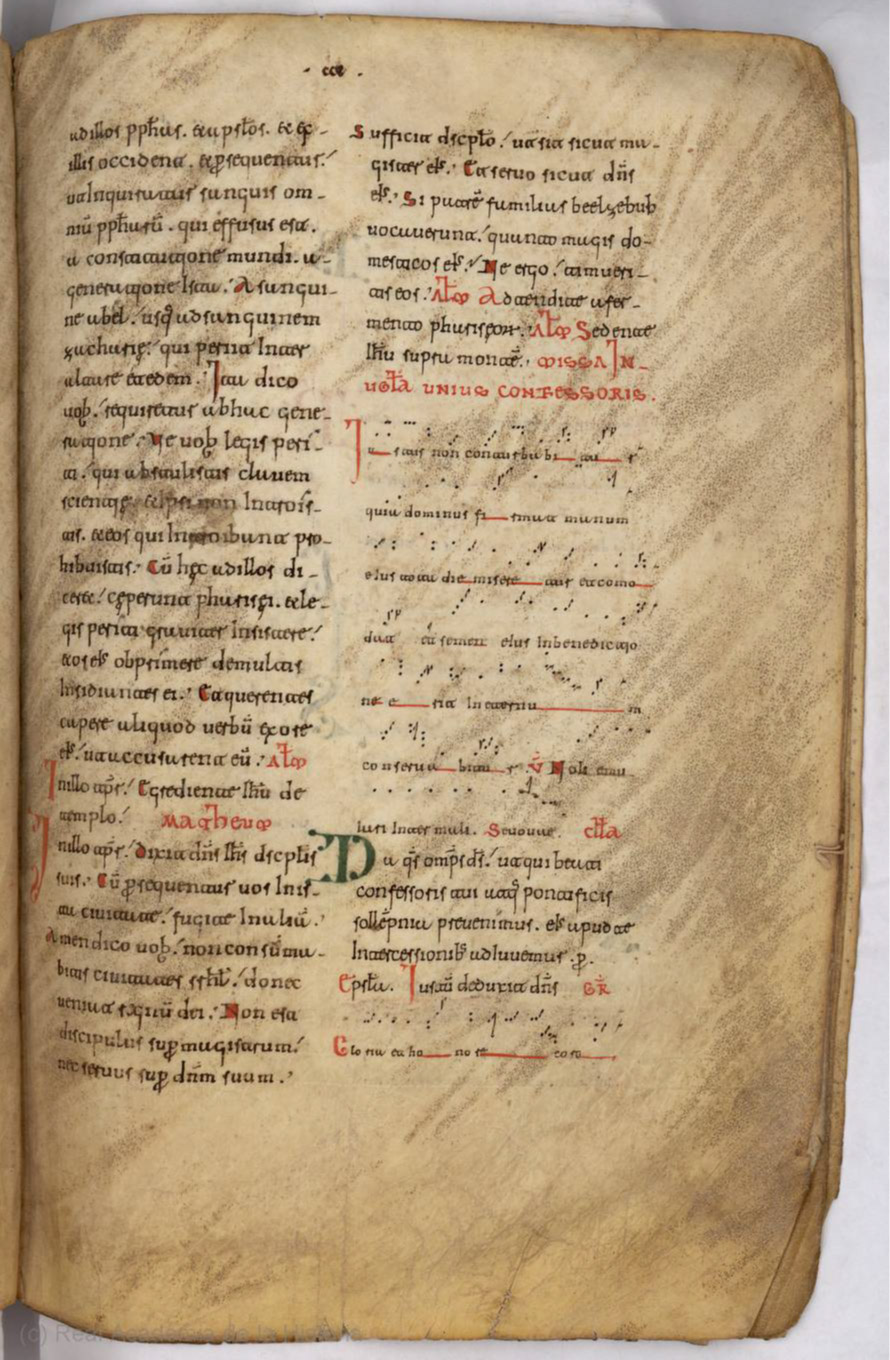 · ccc ·
ad illos ꝓph&as. & apłos. & ex
illis occident. & ꝑsequentur.
ut Inquiratur sanguis om-
niū ꝓph&arū. qui effusus est.
a constitutione mundi. a
generatione Ista. A sangui-
ne abel. usq; ad sanguinem
zacharię. qui periit Inter
altare & edem. Ita dico
uob. requiretur ab hac gene-
ratione. Ve uob legis peri-
ti. qui abstulistis clauem
scientię. & ipsi non Introis-
tis. & eos qui Introibunt pro-
hibuistis. Cū hęc ad illos di-
ceret. cęperunt pharisęi. & le-
gis periti grauiter Insistere.
& os eł obprimere de multis
Insidiantes ei. Et querentes
capere aliquod uerbū ex ore
eł. ut accusarent eū. Alio
Inillo apr. Egrediente Ihū de
templo. Matheuo
Inillo apr. Dixit dn̄s Ihs dscplis
suis. Cū ꝑsequentur uos In is-
ta ciuitate. fugite In aliā.
Amen dico uob. non consūma-
bitis ciuitates isrł. donec
ueniat regnū dei. Non est
discipulus suꝑ magistrum.
nec seruus suꝑ dn̄m suum.
Sufficit dscpło. ut sit sicut ma-
gister eł. Et seruo sicut dn̄s
eł. Si patrē familias beelzebub
uocauerunt. quanto magis do-
mesticos eł. Ne ergo. timueri-
tis eos. Alio Adtendite a fer-
mento phariseor. Alio Sedente
Ihū supra montē. MISSA IN
UGLA UNIUS CONFESSORIS.
Iustus non conturbabitur
quia dominus firmat manum
eius tota die miseretur et como
dat et semen eius In benedictio
ne erit In eternum
conseruabitur. V Noli emu
lari Inter mali. Seuouae. Cłta
Da qs omps ds. ut qui beati
confessoris tui utq; pontificis
sollēpnia preuenimus. eł apud te
Intercessionib adiuuemur. ꝑ.
Epstła. Iustū deduxit dn̄s GR
Gloria et honore coro